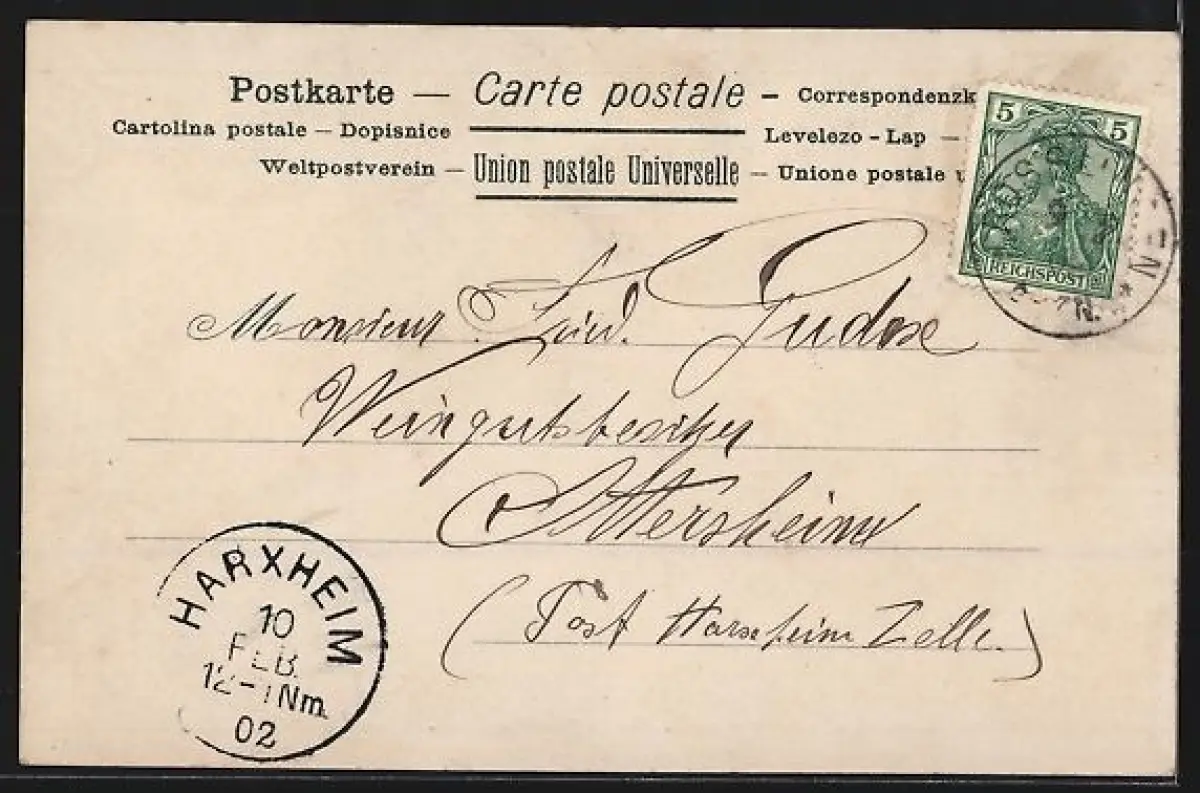 Postkarte — Carte postale — Correspondenzk
Cartolina postale — Dopisnice Levelezo - Lap —
Weltpostverein — Union postale Universelle — Unione postale u
5 5
REICHSPOST
Monsieur Fried.
Weingutsbesitzer
Ottersheim
(Post Harxheim Zelle.)
HARXHEIM
10
FEB.
12-1Nm.
02